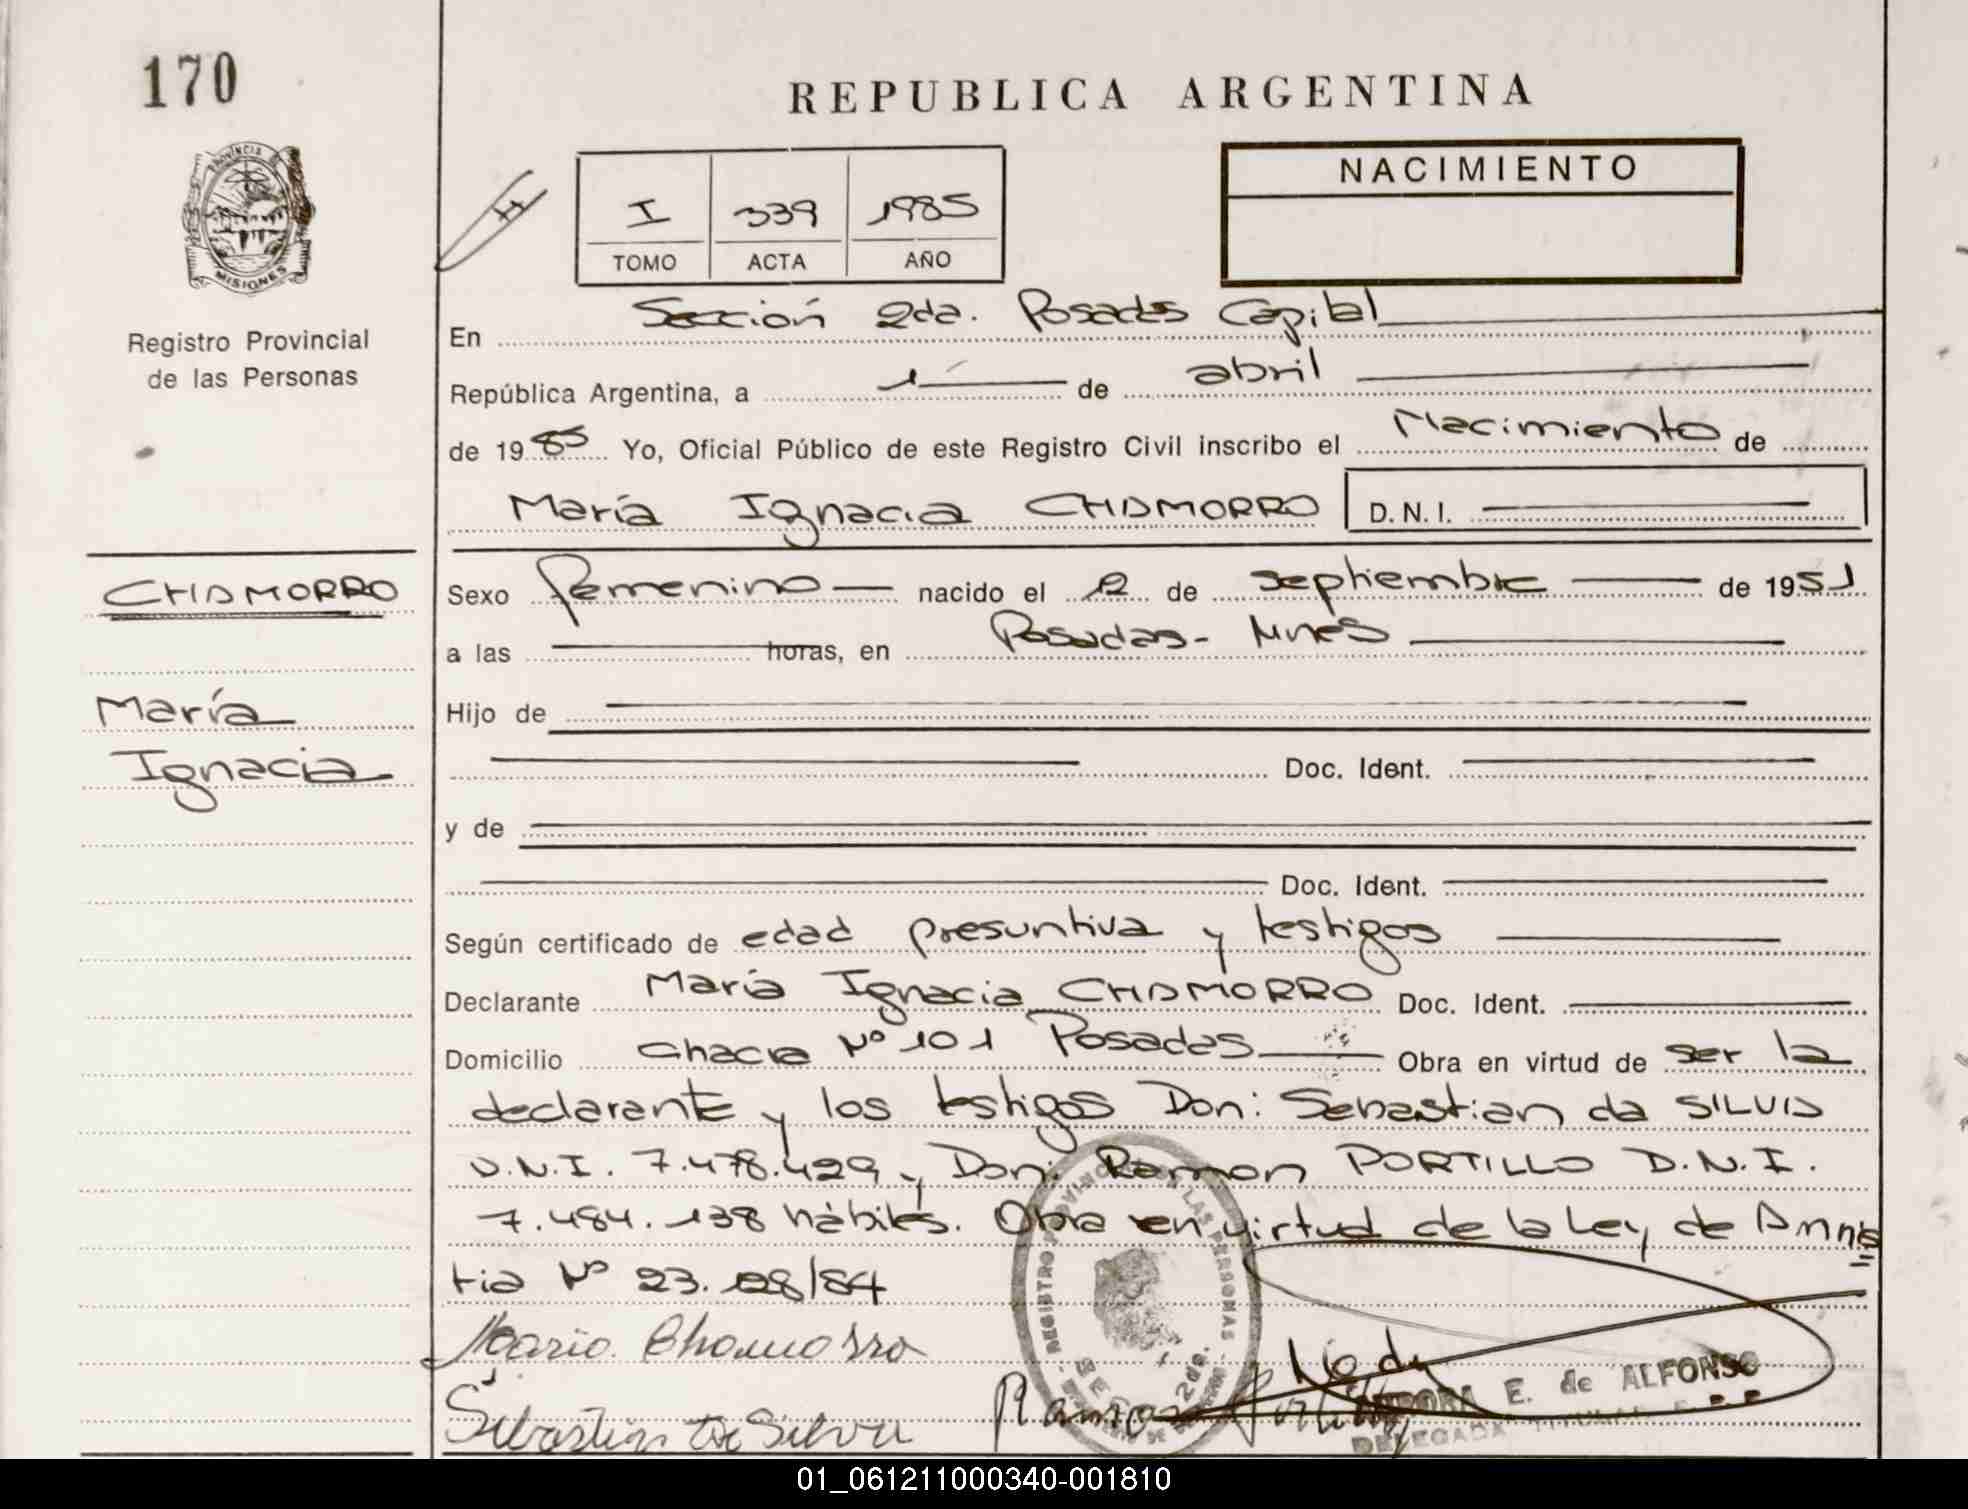 170
REPUBLICA ARGENTINA
PROVINCIA DE
MISIONES
Registro Provincial
de las Personas
I 339 1985
TOMO ACTA AÑO
NACIMIENTO
En Sección 2da. Posadas Capital
República Argentina, a 1 de abril
de 1985 Yo, Oficial Público de este Registro Civil inscribo el Nacimiento de
María Ignacia CHAMORRO D.N.I.
CHAMORRO
María
Ignacia
Sexo femenino nacido el 2 de septiembre de 1951
a las horas, en Posadas - Mnes
Hijo de
Doc. Ident.
y de
Doc. Ident.
Según certificado de edad presuntiva y testigos
Declarante María Ignacia CHAMORRO Doc. Ident.
Domicilio Chacra Nº 101 Posadas Obra en virtud de ser la
declarante y los testigos Don: Sebastian da SILVA
D.N.I. 7.478.429 y Don: Ramon PORTILLO D.N.I.
7.484.138 hábiles. Obra en virtud de la Ley de Amnis
tia Nº 23. /84
Maria Chamorro
Sebastian Da Silva Ramon Portillo
REGISTRO PROVINCIAL DE LAS PERSONAS
2da.
E. de ALFONSO
DELEGADA
01_061211000340-001810